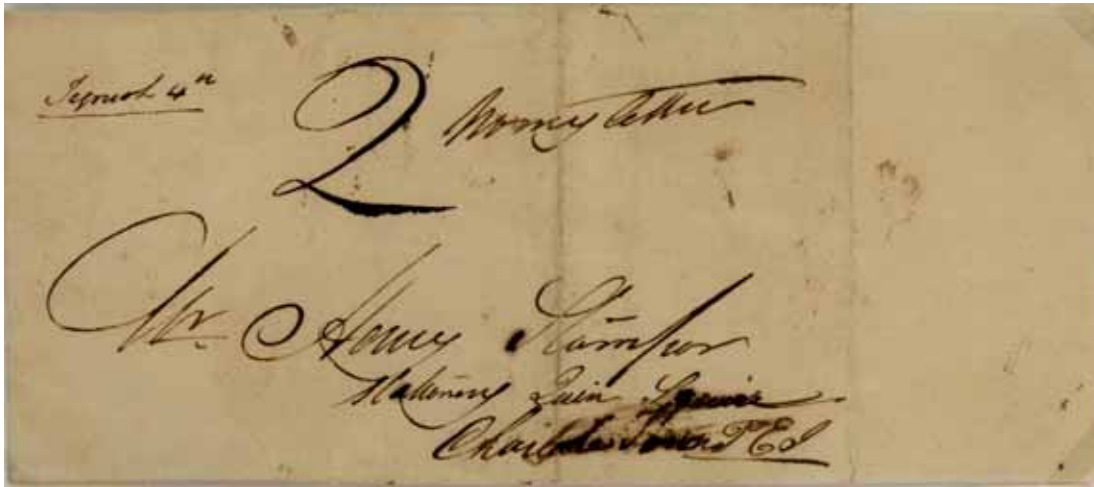 Tignish 4th
2 Money letter
Mr. Henry Stamper
Stationery Quin Squire
Charlotte Town P E I